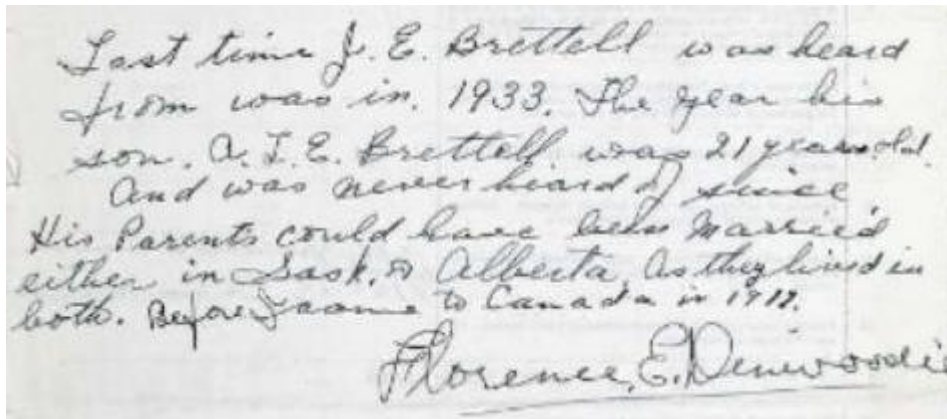 Last time J. E. Brettell was heard
from was in. 1933. The year his
son. A. J. E. Brettell. was 21 years old.
And was never heard of since.
His Parents could have been Married
either in Sask. or Alberta, As they lived in
both. Before I came to Canada in
Florence, E. Dinwoodie